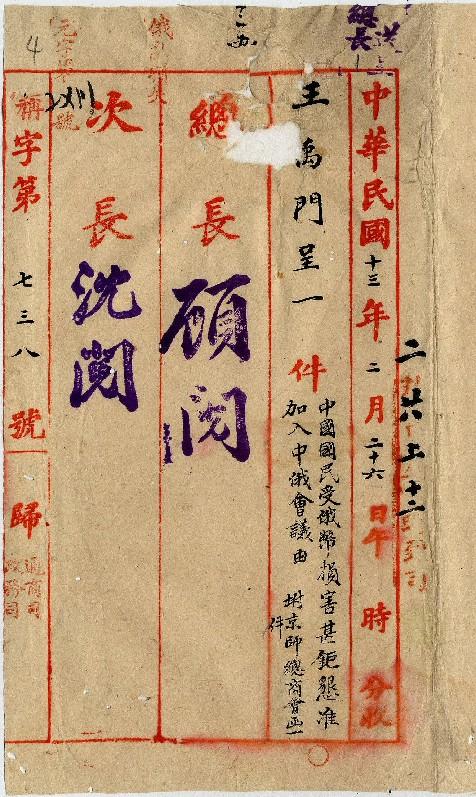 送上
總長
中華民國十三年二月二十六日午時分收
二 廿六 上 十二
王禹門呈一件
中國國民受俄幣損害甚鉅懇准
加入中俄會議由 附京師總商會函一
件
總長 顧閱
次長 沈閱
稱字第七三八號歸
通商司
政務司
4